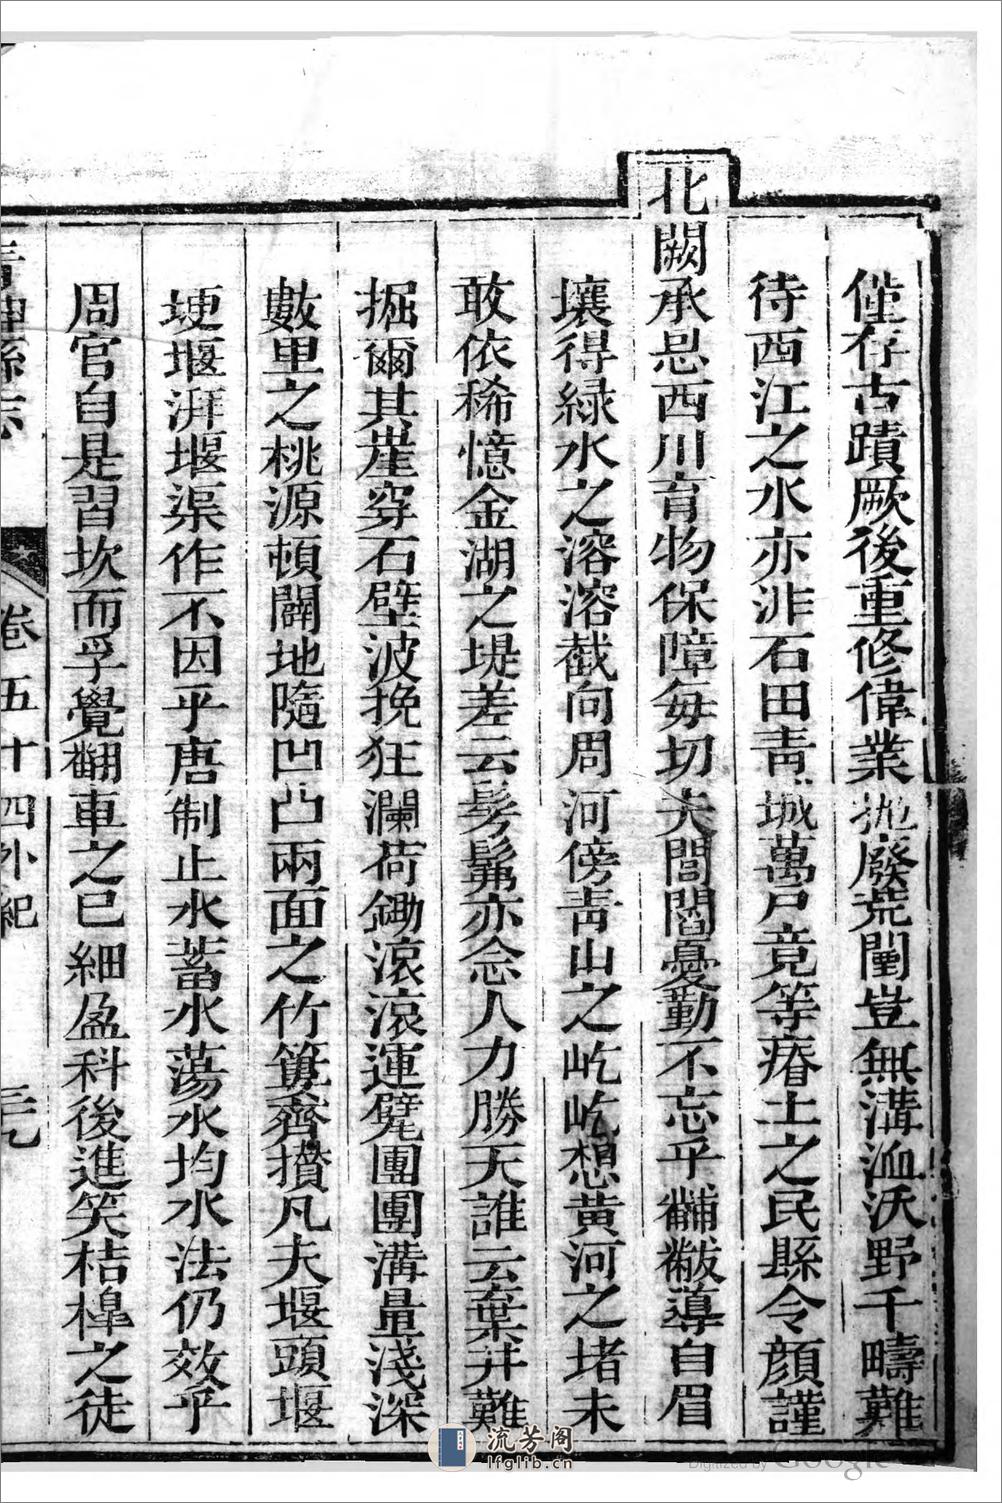 僅存古蹟厥後重修偉業拋廢荒閘豈無溝洫沃野千疇難
待西江之水亦非石田青城萬戶竟等瘠土之民縣令顏謹
北闕承恩西川育物保障每切夫閭閻憂勤不忘乎黼黻導自眉
壤得緑水之溶溶截向周河傍青山之屹屹想黃河之堵未
敢依稀憶金湖之堤差云髣髴亦念人力勝天誰云棄井難
掘爾其崖穿石壁波挽狂瀾荷鋤滾滾運甓團團溝量淺深
數里之桃源頓闢地隨凹凸兩面之竹籠齊攢凡夫堰頭堰
埂堰湃堰渠作不因乎唐制止水蓄水蕩水均水法仍效乎
周官自是習坎而孚覺翻車之已細盈科後進笑桔槔之徒
青神縣志
卷五十四外紀
流芳阁
lfglib.cn
Digitized by Google